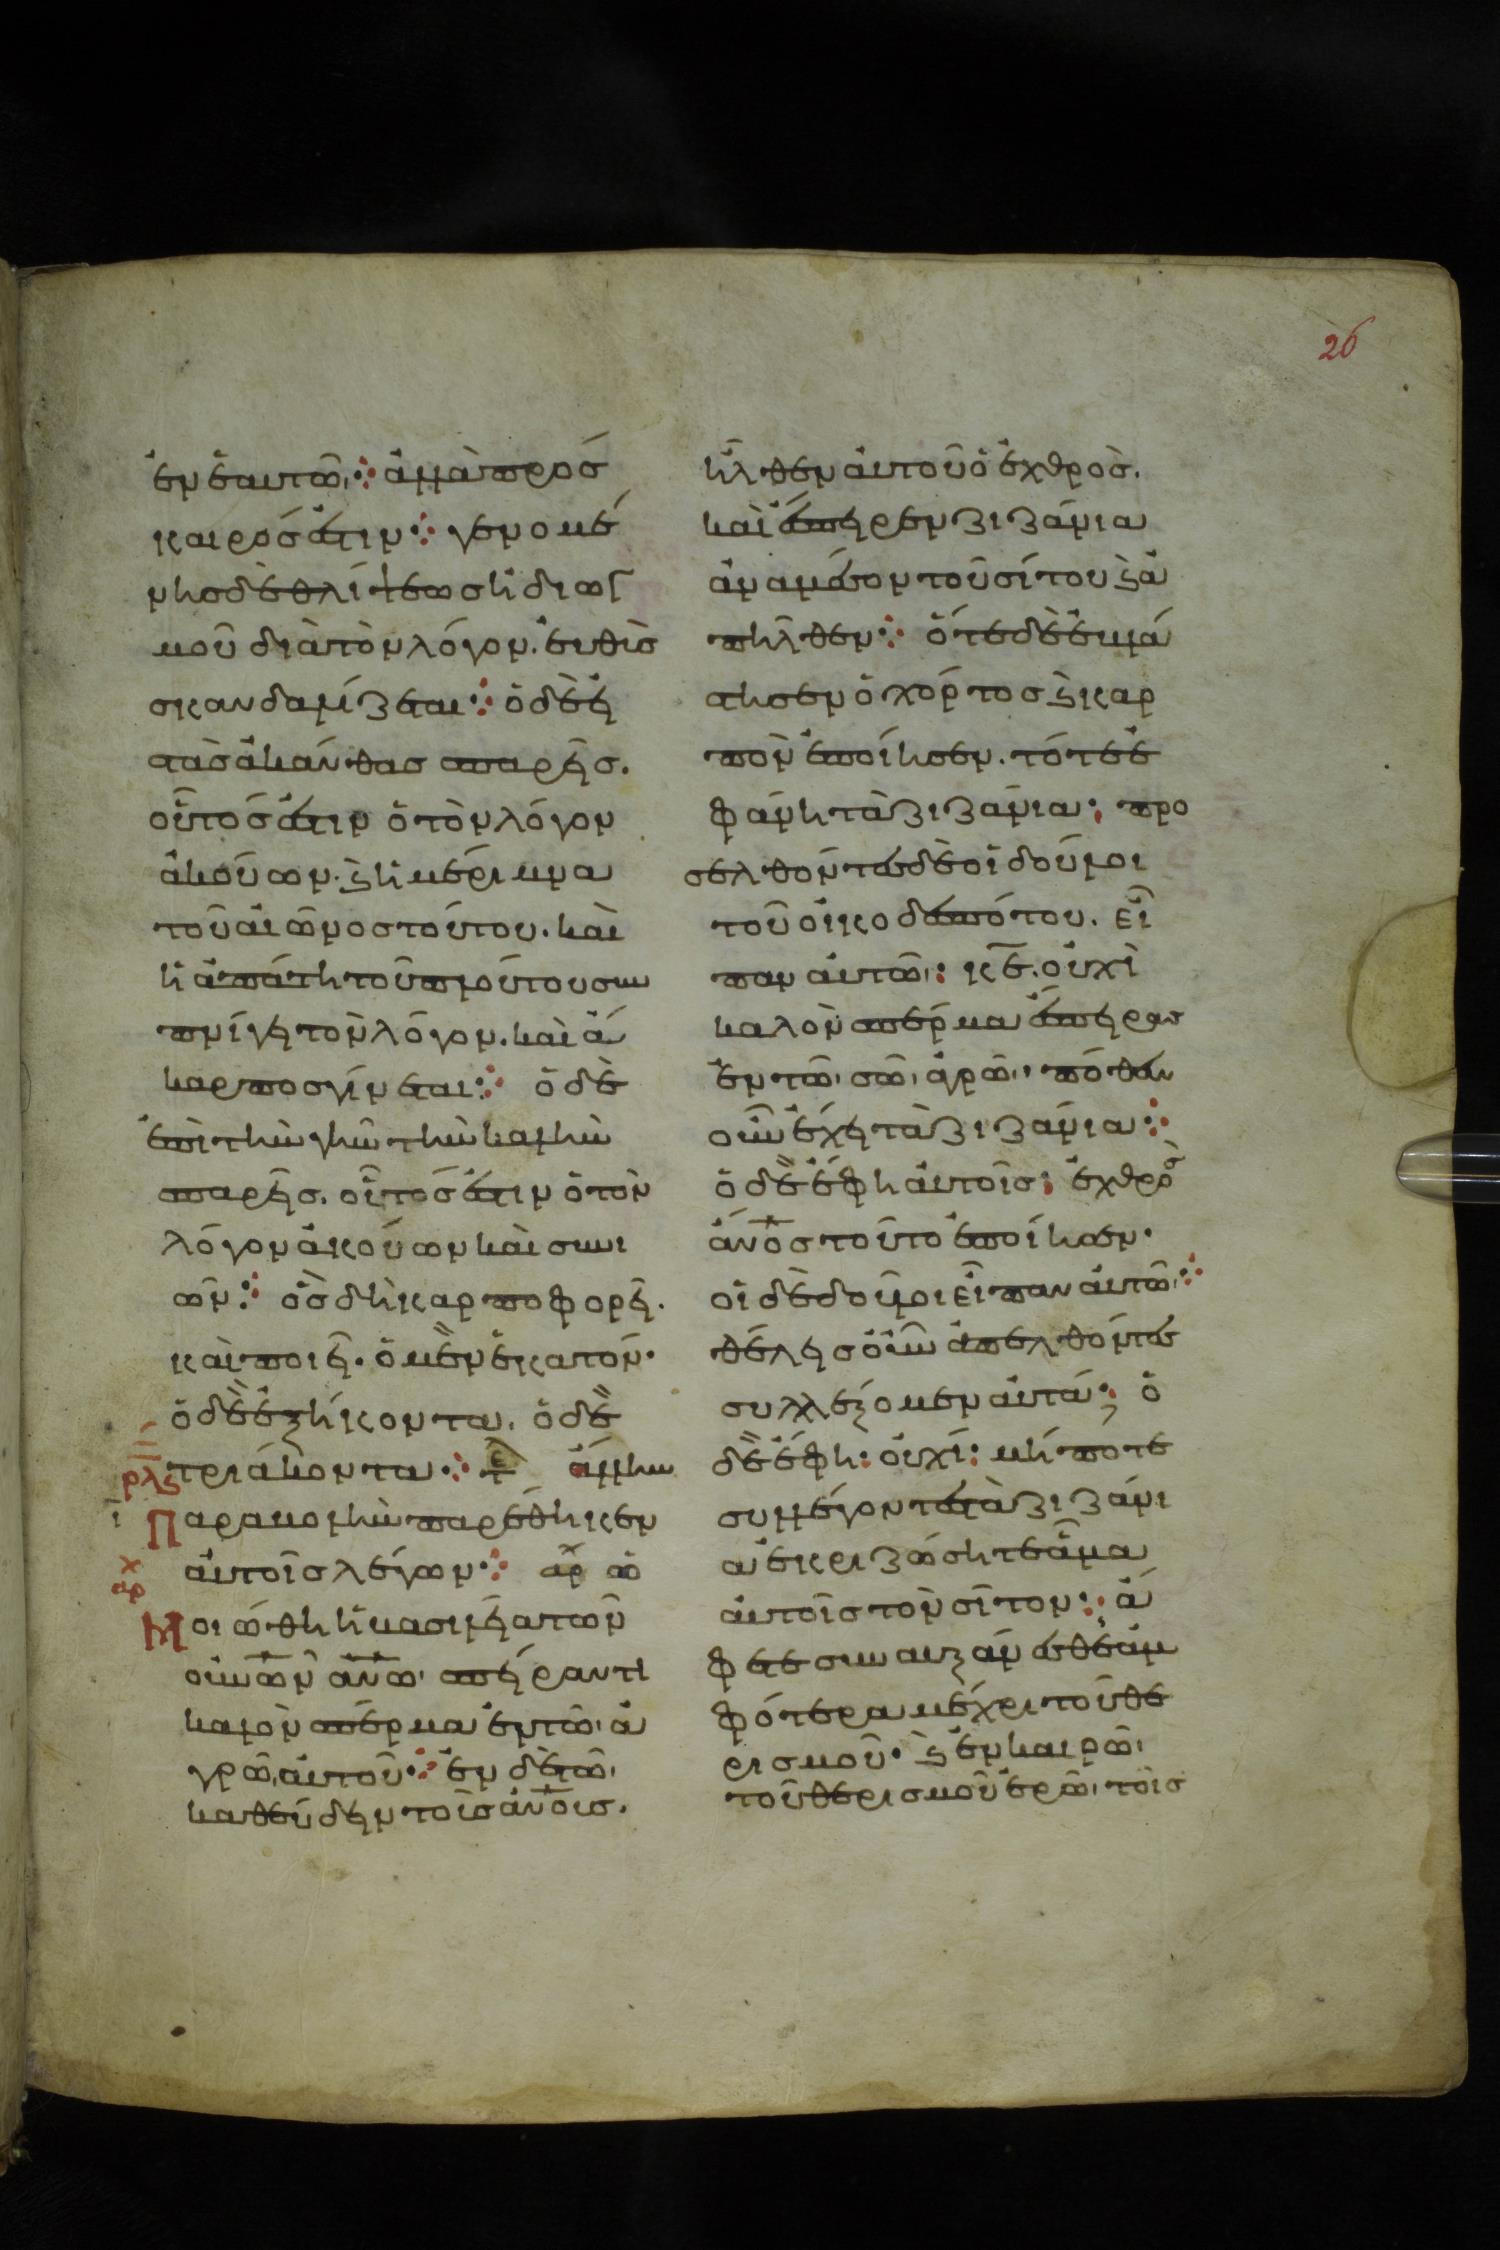 26
ἐν ἑαυτῶ· ἀλλὰ πρόσ
καιρόσ ἐστιν· γενομέ
νησ δὲ θλίψεωσ ἢ διωγ
μοῦ διὰ τὸν λόγον. ἐυθὺσ
σκανδαλίζεται· ὁ δὲ εἰ
στὰσ ἀκάνθασ σπαρεὶσ.
οὗτόσ ἐστιν ὁ τὸν λόγον
ἀκούων. ϗ ἡ μέριμνα
τοῦ αἰῶνοσ τούτου. καὶ
ἡ ἀπάτη τοῦ πλούτου συμ
πνίγει τὸν λόγον. καὶ ἄ
καρποσ γίνεται· ὁ δὲ
ἐπὶ τὴν γῆν τὴν καλὴν
σπαρεὶσ. οὗτοσ ἐστιν ὁ τὸν
λόγον ἀκούων καὶ συνι
ῶν· ὃσ δὴ καρποφορεῖ.
καὶ ποιεῖ. ὁ μὲν ἑκατόν.
ὁ δὲ ἑξήκοντα. ὁ δὲ
τριάκοντα· ἄλλην
ρλς
ι Παραβολὴν παρέθηκεν
αὐτοῖσ λέγων·
αρχ Ὡμοιώθη ἡ βασιλεία τῶν
οὐνῶν ἀνω σπείραντι
καλὸν σπέρμα ἐν τῶ ἀ
γρῶ αὐτοῦ· ἐν δὲ τῶ
καθεύδειν τοῖσ ἀνοισ.
ἦλθεν ἀυτοῦ ὁ ἐχθρὸσ.
καὶ ἔσπειρεν ζιζάνια
ἀναμέσον τοῦ σίτου ϗ ἀ
πῆλθεν· ὅτε δὲ ἐβλά
στησεν ὁ χόρτοσ ϗ καρ
πὸν ἐποίησεν. τότε ἐ
φάνη τὰ ζιζάνια· προ
σελθόντεσ δὲ οἱ δοῦλοι
τοῦ οἰκοδεσπότου. εἶ
παν ἀυτῶ· κε. οὐχὶ
καλὸν σπέρμα ἔσπειρασ
ἐν τῶ σῶ ἀγρῶ· πόθεν
οὖν ἔχει τὰ ζιζάνια·
ὁ δὲ ἔφη ἀυτοῖσ· ἐχθρὸσ
ἄνοσ τοῦτο ἐποίησεν.
οἱ δὲ δοῦλοι εἶπαν ἀυτῶ·
θέλεισ οὖν ἀπελθόντεσ
συλλέξομεν ἀυτά; ὁ
δὲ ἔφη· οὐχί· μήποτε
συλλέγοντεσ τὰ ζιζάνι
α ἐκριζώσητε ἅμα
ἀυτοῖσ τὸν σῖτον· ἄ
φετε συναυξάνεσθε ἀμ
φότερα μέχρι τοῦ θε
ρισμοῦ. ϗ ἐν καιρῶ
τοῦ θερισμοῦ ἐρῶ τοῖσ